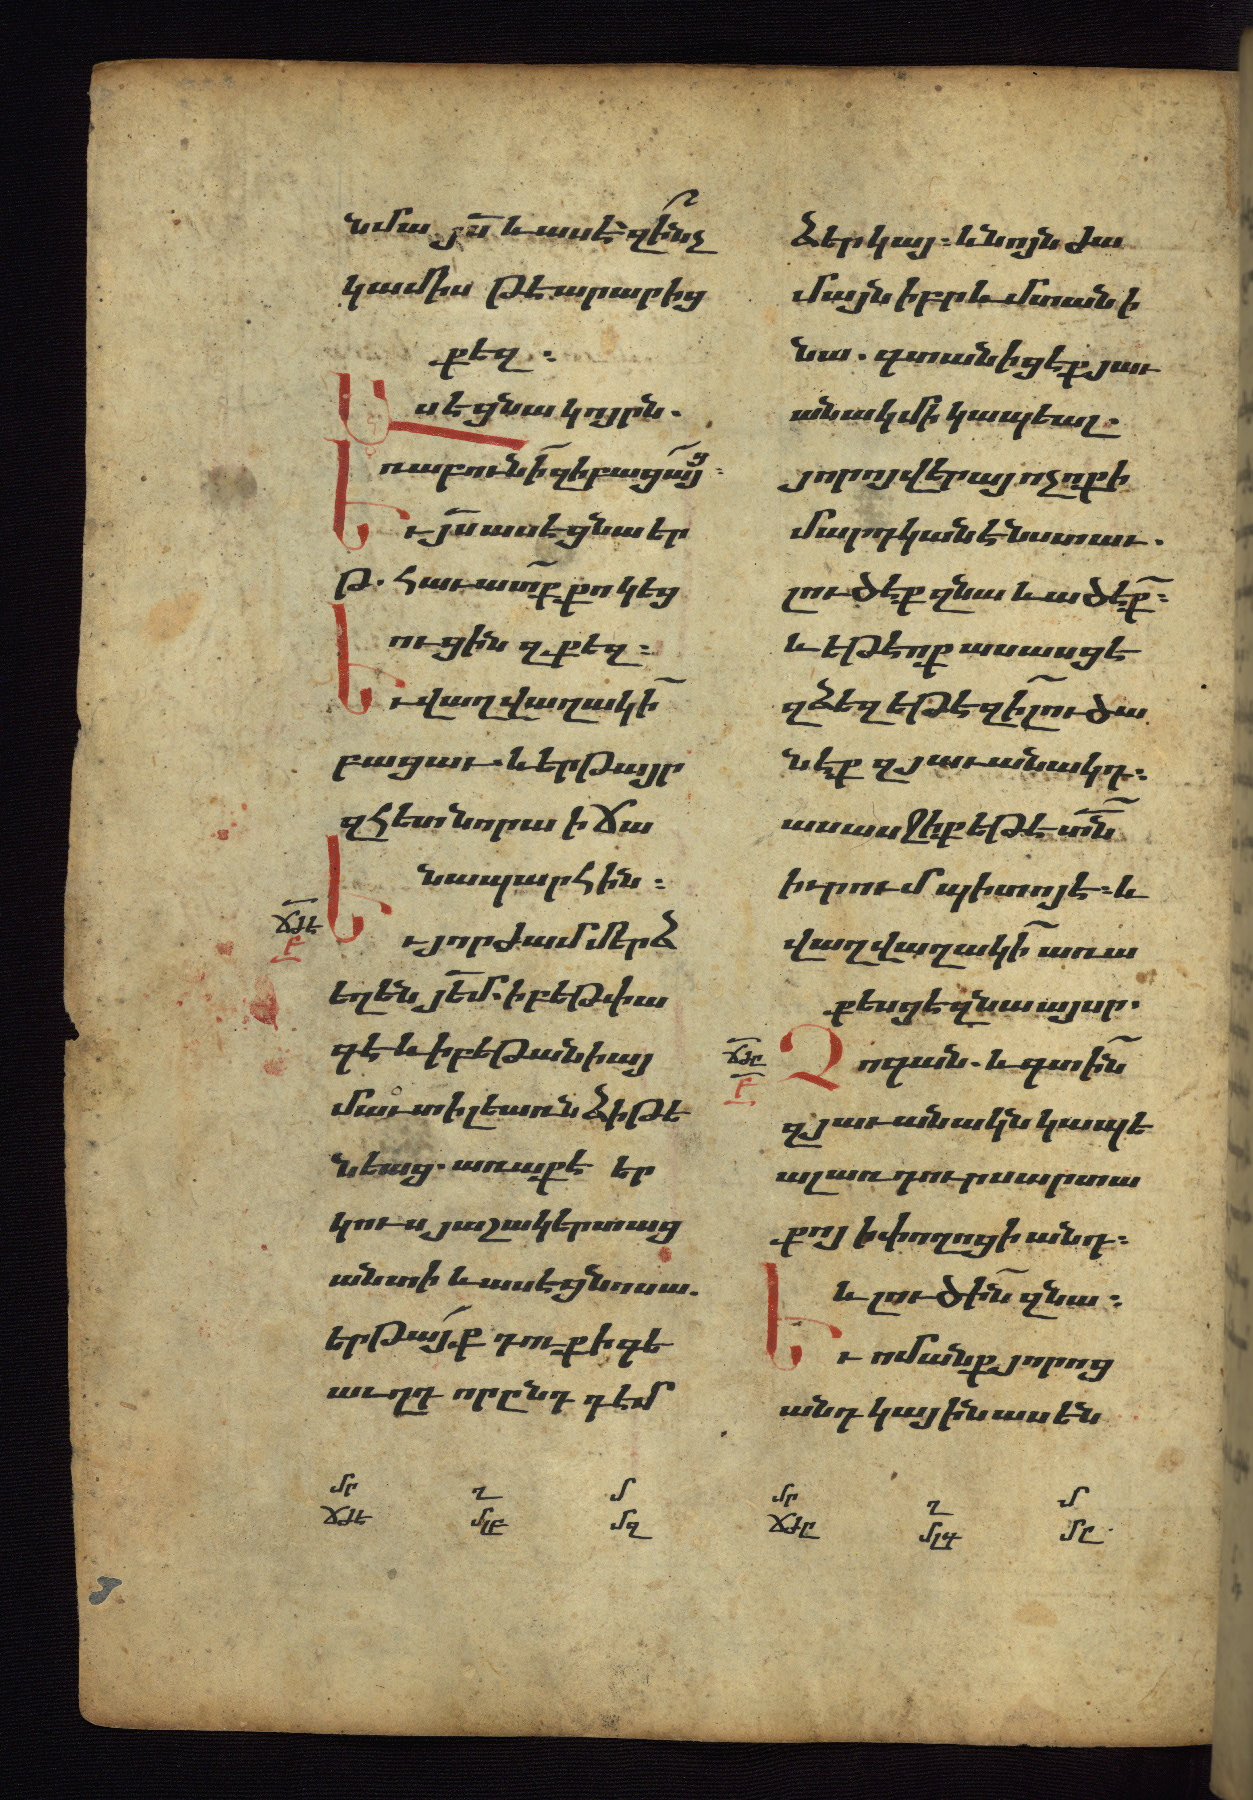 նմա յս̅ և ասէ զի̅նչ
կամիս թէ արարից
քեզ ։
Ասէ ցնա կոյրն .
ռաբունի̅ զի բացա̅յց ։
Եւ յս̅ ասէ ցնա եր
թ . հաւատք քո կեց
ուցին զքեզ ։
Եւ վաղվաղակի̅
բացաւ . և երթայր
զհետ նորա ի ճա
նապարհին ։
ճժէ
բ
Եւ յորժամ մերձ
եղեն յե̅մ . ի բեթփա
գէ և ի բեթանիայ
մաւտ ի լեառն ձիթե
նեաց . առաքէ եր
կուս յաշակերտաց
անտի և ասէ ցնոսա .
երթայք դուք ի գե
աւղդ որ ընդ դէմ
մր ղ մ
ճժէ մլբ մզ
ձեր կայ ։ և նոյն ժա
մայն իբրև մտանի
նա . գտանիցէք յաւ
անակ մի կապեալ .
յորոյ վերայ ոչ ոք ի
մարդկանէ նստաւ .
լուծէք զնա և ածէք̅ ։
և եթէ ոք ասասցէ
զձեզ եթէ զի̅ լուծա
նէք զյաւանակդ ։
ասասջիք եթէ տն̅
իւրում պիտոյ է ։ և
վաղվաղակի̅ առա
քեսցէ զնա այսր .
ճժը
բ
Չոգան . և գտին̅
զյաւանակն կապե
ալ առ դուրս արտա
քոյ ի փողոցի անդ ։
և լուծին̅ զնա ։
Եւ ոմանք յորոց
անդ կային ասեն
մր ղ մ
ճժը մլգ մը